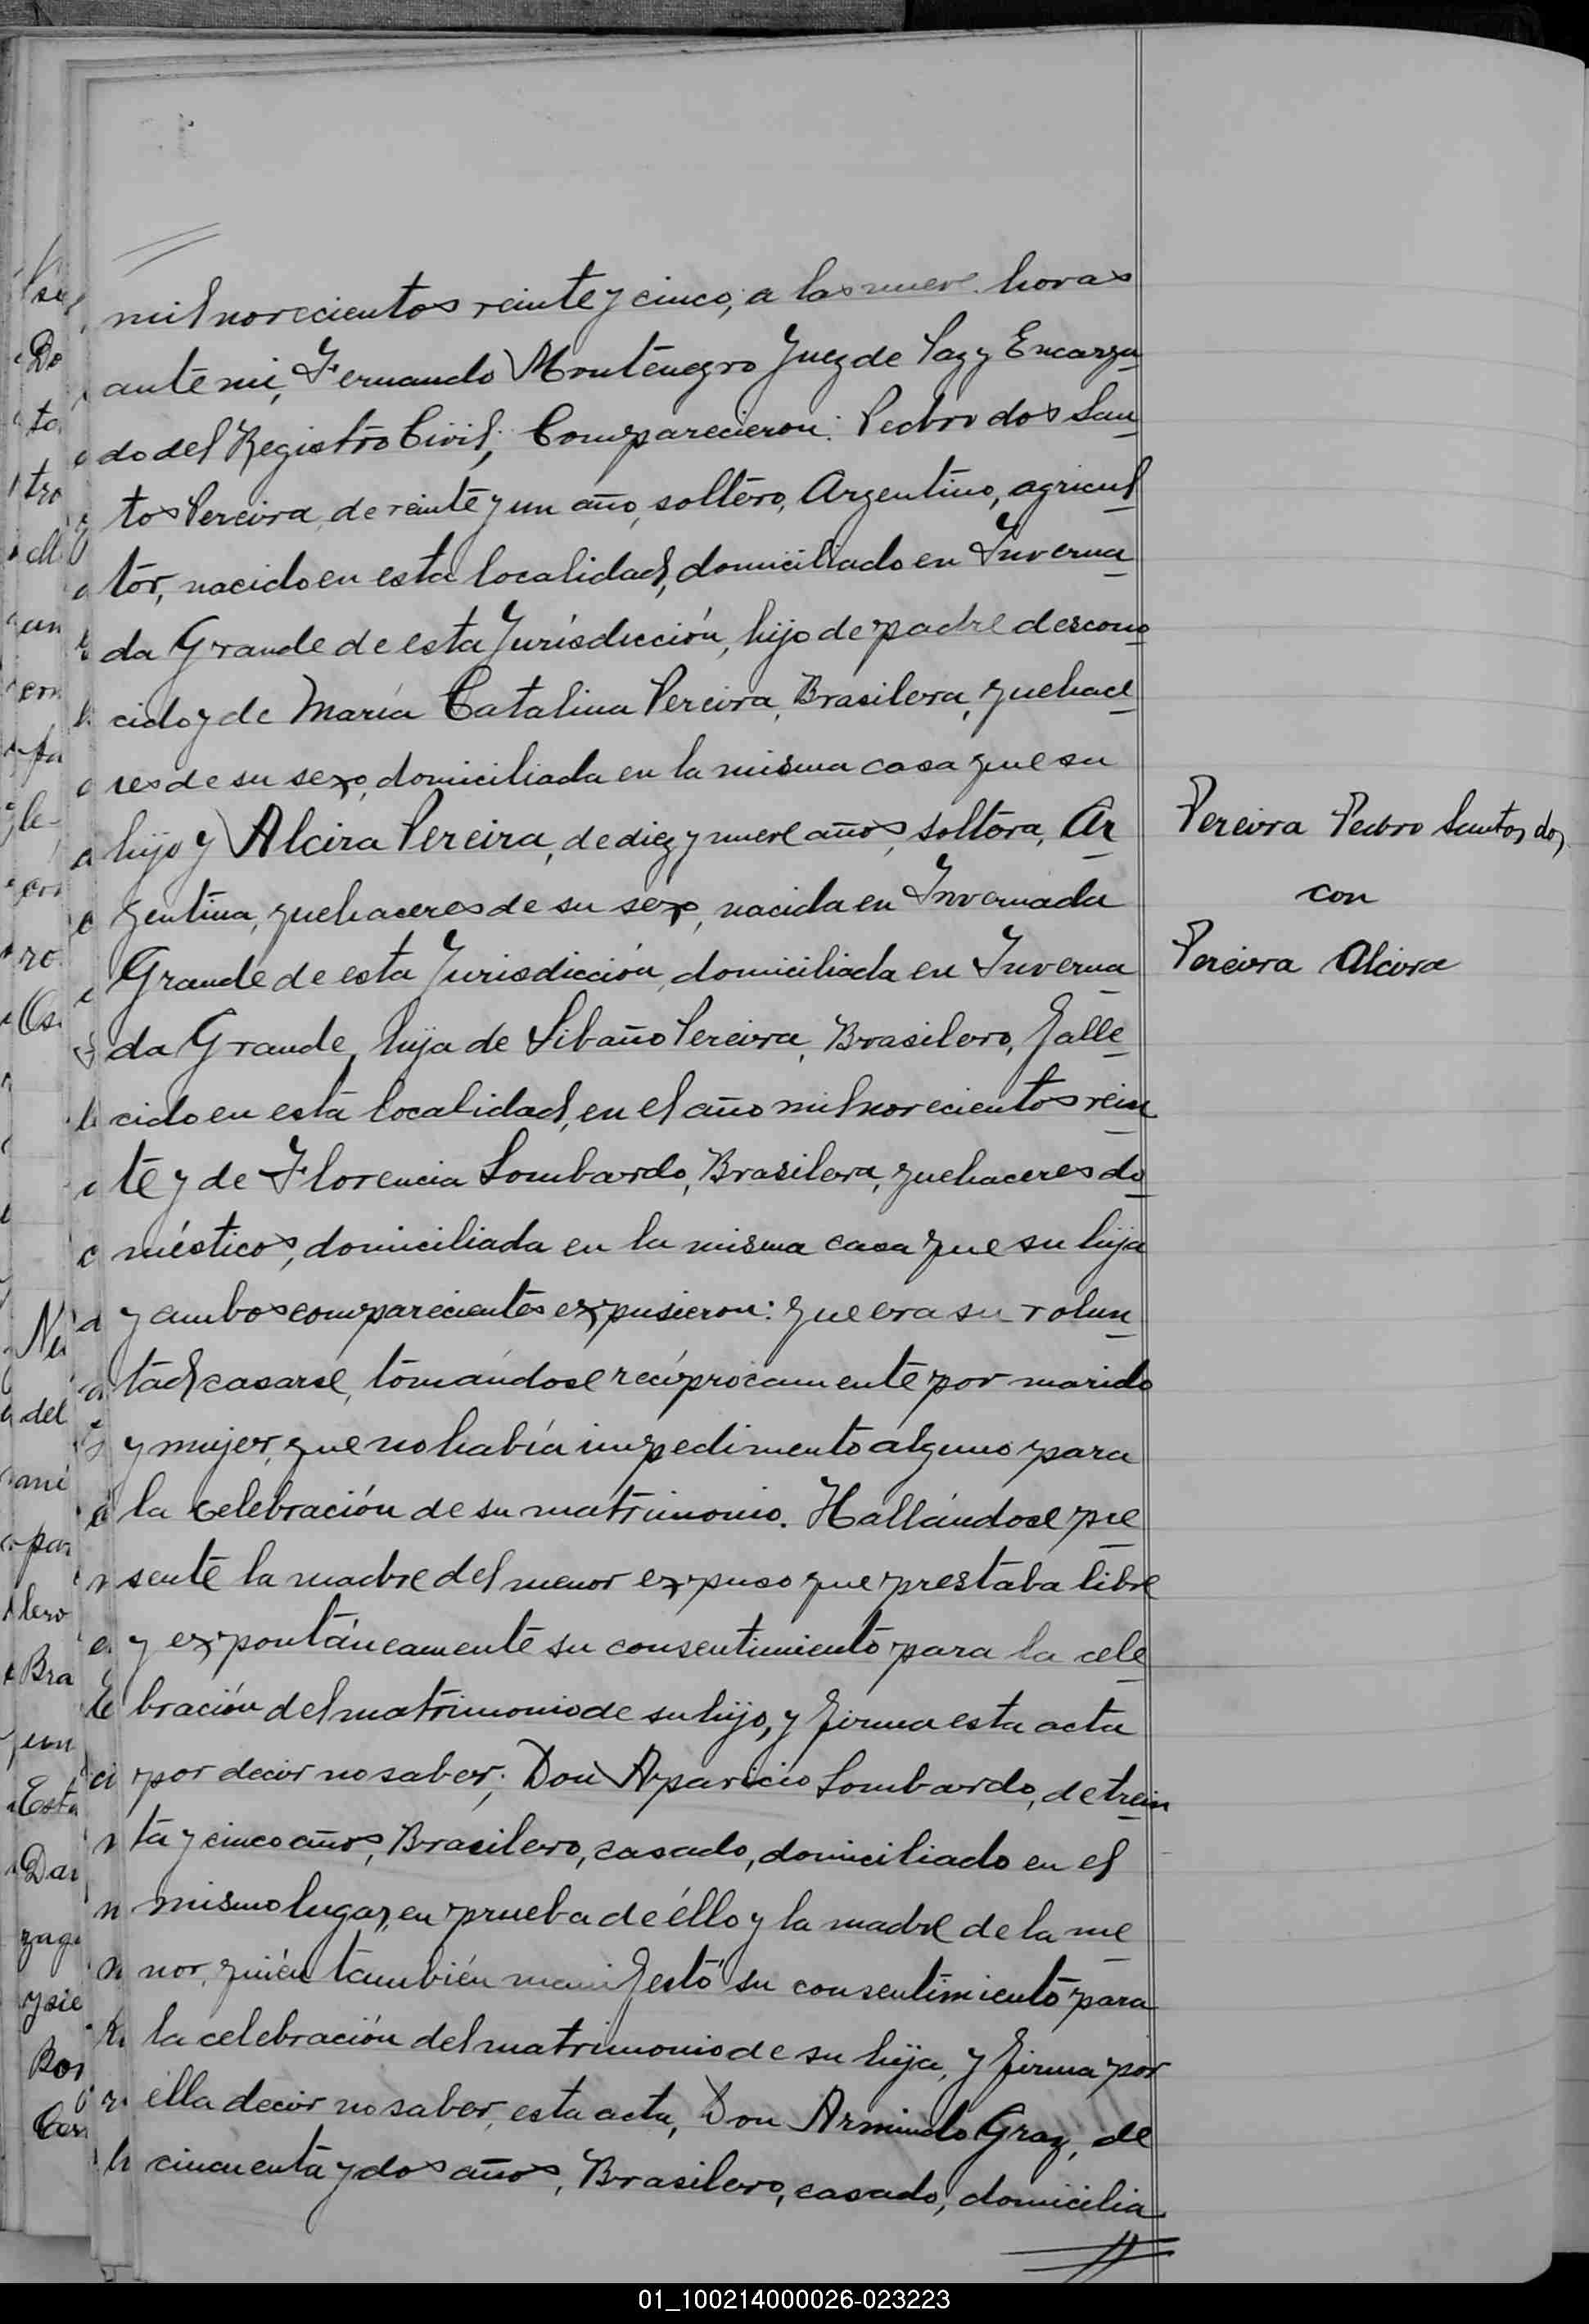 mil novecientos veinte y cinco, a las nueve horas
ante mi, Fernando Montenegro Juez de Paz y Encarga
do del Registro Civil; Comparecieron: Pedro dos San
tos Pereira, de veinte y un año, soltero, Argentino, agricul
tor, nacido en esta localidad, domiciliado en Inverna
da Grande de esta Jurisdicción, hijo de padre descono
cido y de María Catalina Pereira, Brasilera, quehace
res de su sexo, domiciliada en la misma casa que su
hijo y Alcira Pereira, de diez y nueve años, soltera, Ar
gentina, quehaceres de su sexo, nacida en Invernada
Grande de esta Jurisdicción, domiciliada en Inverna
da Grande, hija de Libaño Pereira, Brasilero, falle
cido en esta localidad, en el año mil novecientos vein
te y de Florencia Lombardo, Brasilera, quehaceres do
mésticos, domiciliada en la misma casa que su hija
y ambos comparecientes expusieron: que era su volun
tad casarse, tomándose recíprocamente por marido
y mujer, que no había impedimento alguno para
la celebración de su matrimonio. Hallándose pre
sente la madre del menor expuso que prestaba libre
y expontáneamente su consentimiento para la cele
bración del matrimonio de su hijo, y firma esta acta
por decir no saber; Don Aparicio Lombardo, de trein
ta y cinco años, Brasilero, casado, domiciliado en el
mismo lugar, en prueba de éllo y la madre de la me
nor, quién también manifestó su consentimiento para
la celebración del matrimonio de su hija, y firma por
élla decir no saber, esta acta, Don Armindo Graz, de
cincuenta y dos años, Brasilero, casado, domicilia
Pereira Pedro Santos dos
con
Pereira Alcira
01_100214000026-023223